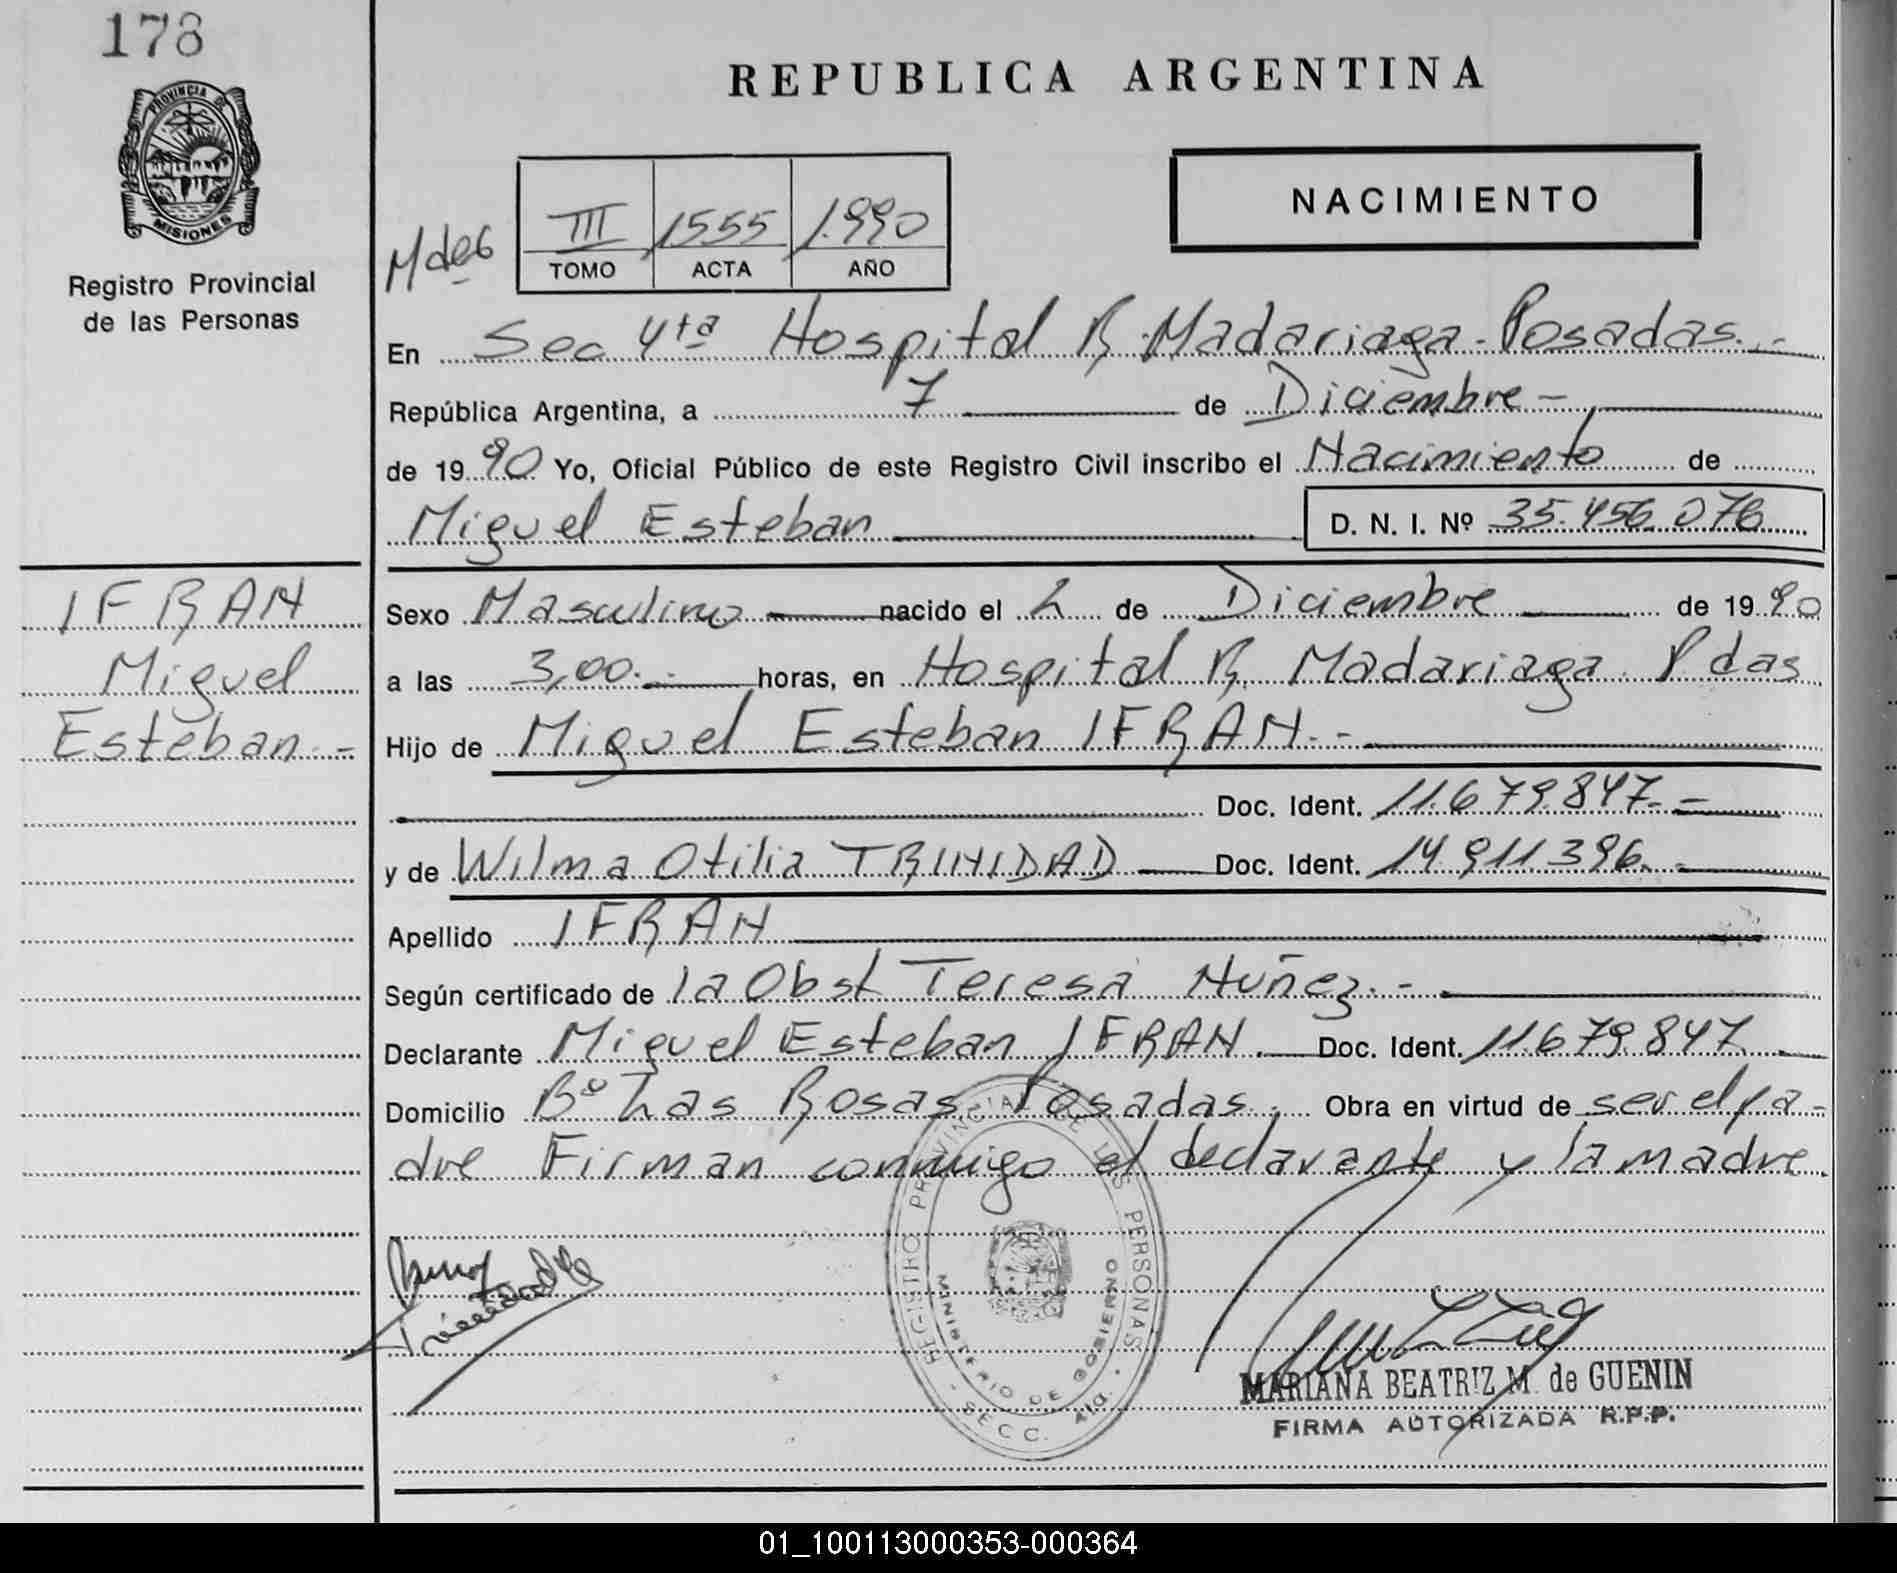 178
PROVINCIA DE
MISIONES
Registro Provincial
de las Personas
REPUBLICA ARGENTINA
NACIMIENTO
III 1555 1.990
TOMO ACTA AÑO
En Sec 4ta Hospital R. Madariaga - Posadas.-
República Argentina, a 7 de Diciembre -
de 1990 Yo, Oficial Público de este Registro Civil inscribo el Nacimiento de
Miguel Esteban D. N. I. Nº 35.456.076
IFRAN
Miguel
Esteban.-
Sexo Masculino nacido el 2 de Diciembre de 1990
a las 3,00.- horas, en Hospital R. Madariaga Pdas
Hijo de Miguel Esteban IFRAN.-
Doc. Ident. 11.679.847.-
y de Wilma Otilia TRINIDAD Doc. Ident. 14.911.396.-
Apellido IFRAN
Según certificado de la Obst Teresa Nuñez.-
Declarante Miguel Esteban IFRAN. Doc. Ident. 11.679.847
Domicilio Bº Las Rosas Posadas. Obra en virtud de ser el pa-
dre Firman conmigo el declarante y la madre.
REGISTRO PROVINCIAL DE LAS PERSONAS
MINISTERIO DE GOBIERNO
SECC. 4ta.
MARIANA BEATRIZ M. de GUENIN
FIRMA AUTORIZADA R.P.P.
01_100113000353-000364